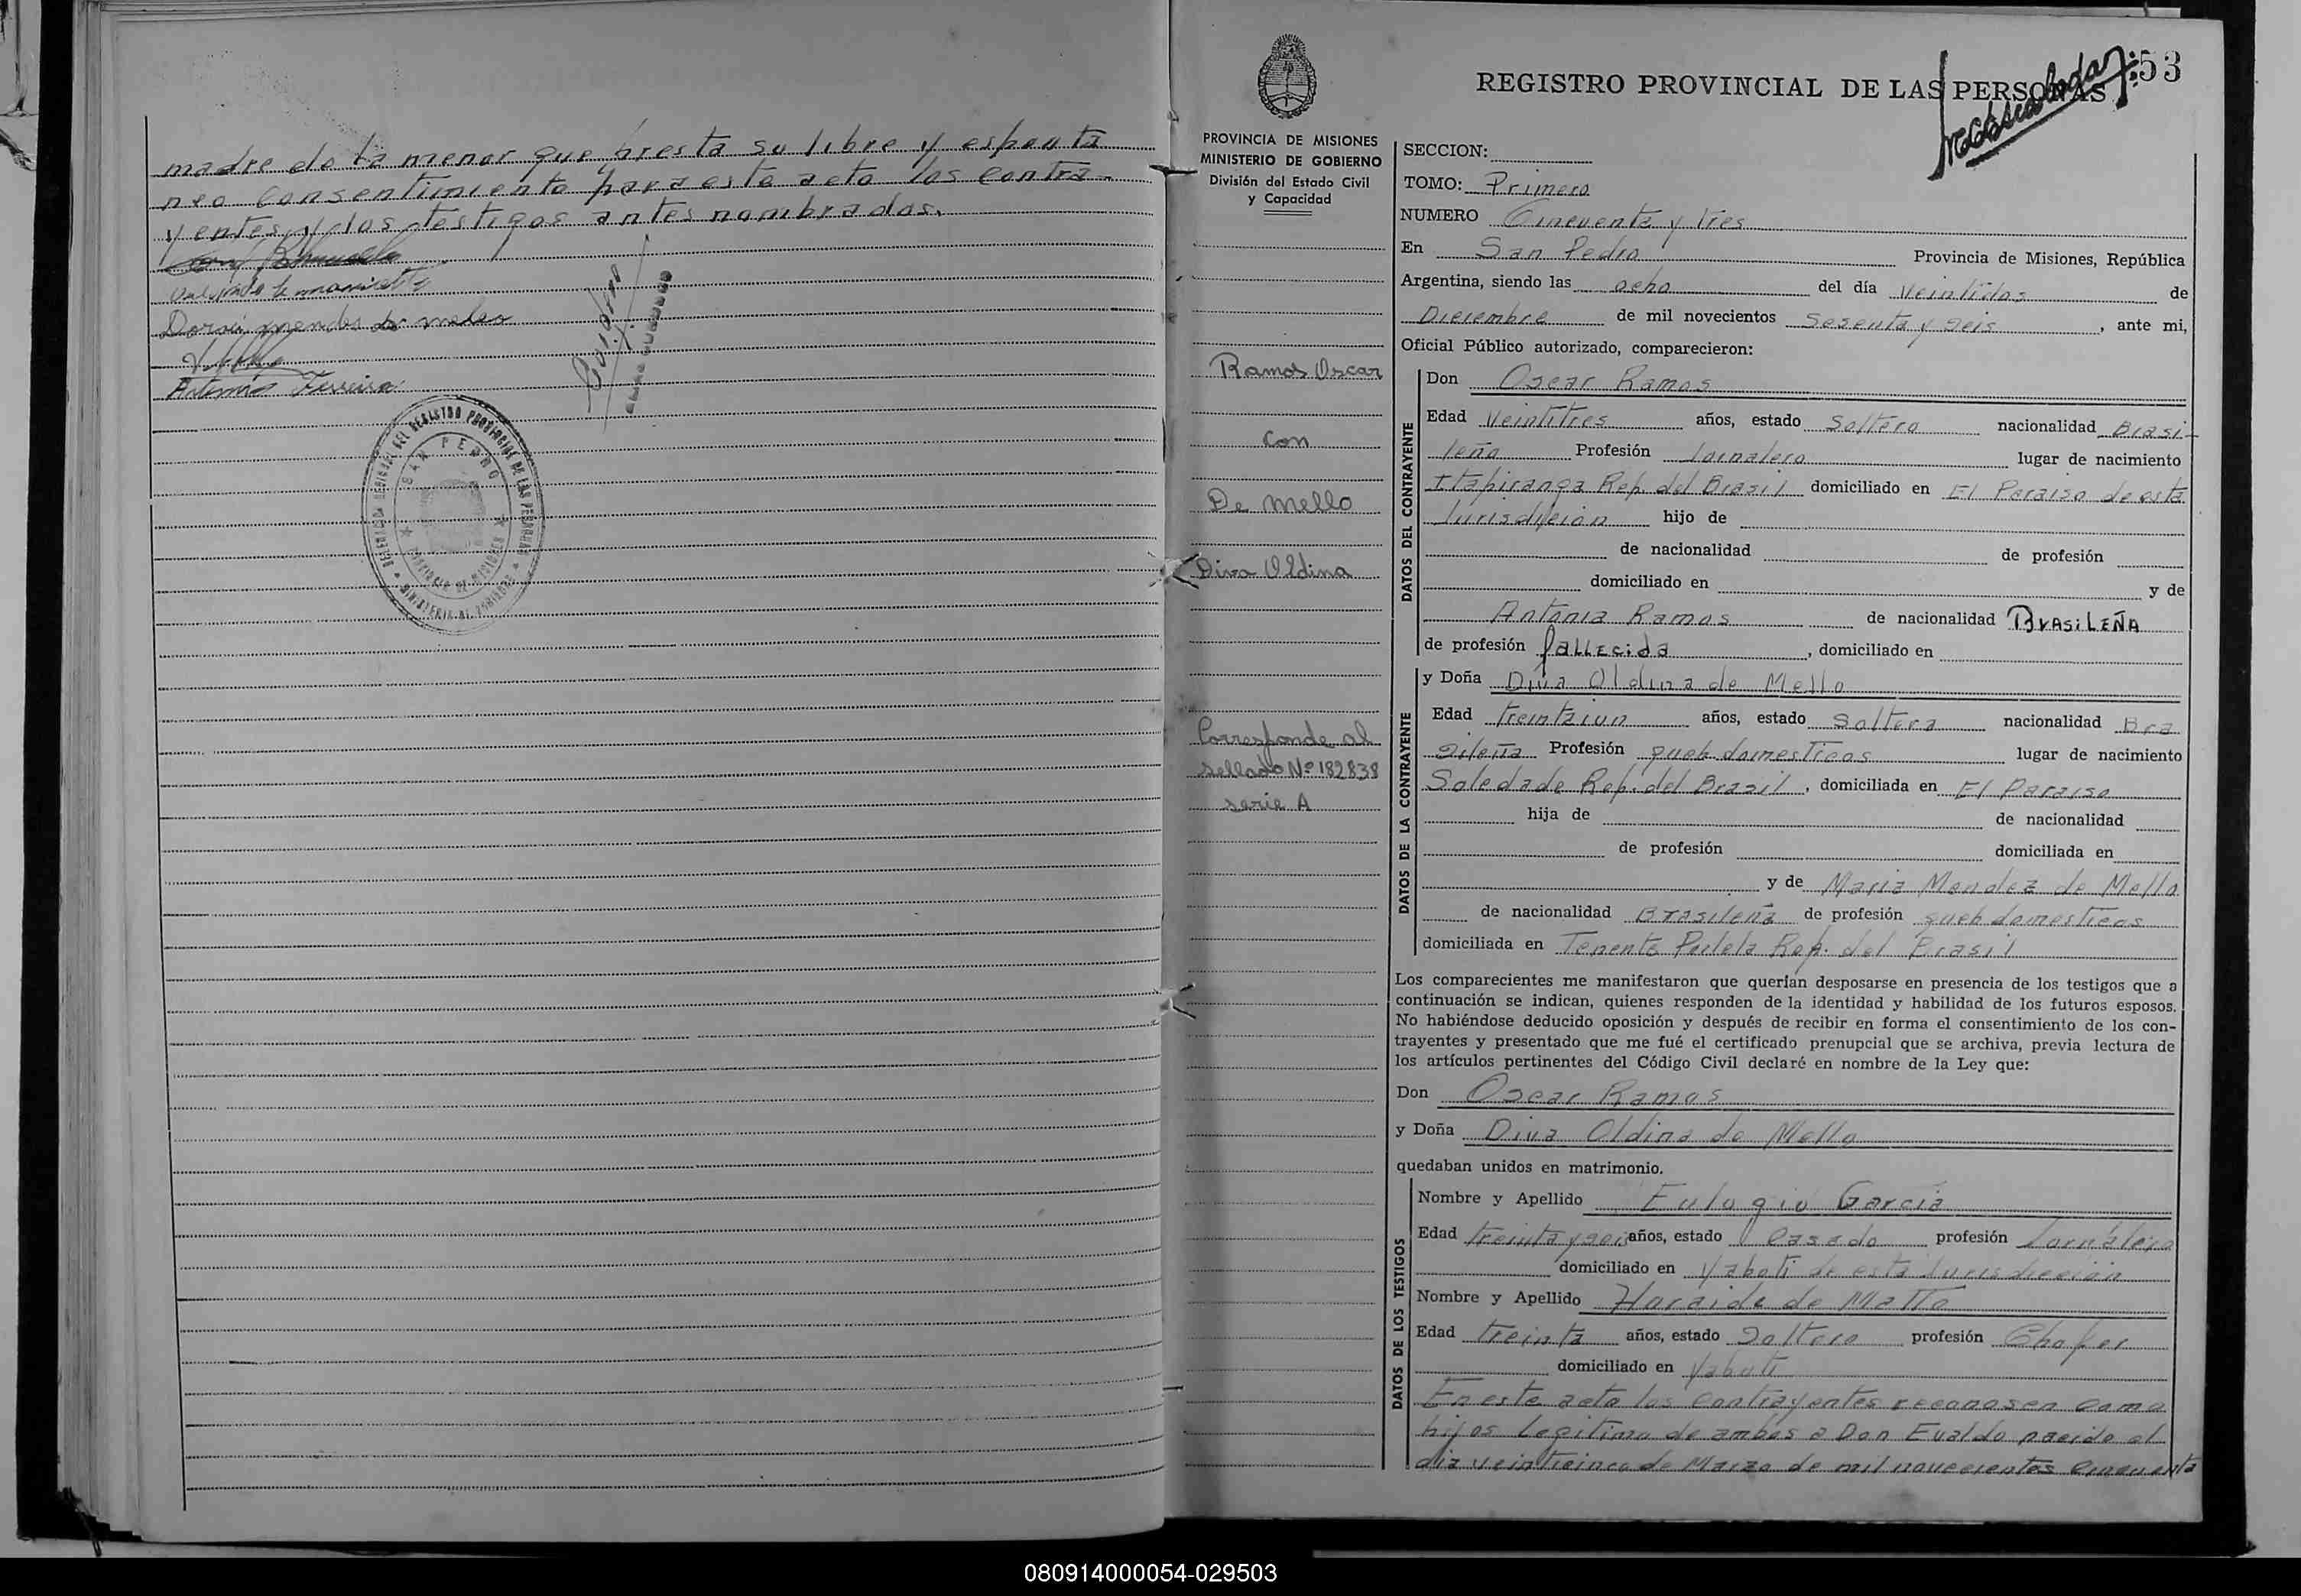 madre de la menor que presta su libre y esponta
neo consentimiento para este acto los contra-
yentes y los testigos antes nombrados.
Dorvi mendes de meleo
Antonio Ferreira
DELEGACION REGIONAL DEL REGISTRO PROVINCIAL DE LAS PERSONAS
SAN PEDRO
PROVINCIA DE MISIONES
MINISTERIO DE GOBIERNO
53
REGISTRO PROVINCIAL DE LAS PERSONAS
PROVINCIA DE MISIONES
MINISTERIO DE GOBIERNO
División del Estado Civil
y Capacidad
Ramos Oscar
Con
De Mello
Diva Oldina
Corresponde al
sellado Nº 182838
serie A
SECCION:
TOMO: Primero
NUMERO Cincuenta y tres
En San Pedro Provincia de Misiones, República
Argentina, siendo las ocho del día veintidos de
Diciembre de mil novecientos sesenta y seis, ante mi,
Oficial Público autorizado, comparecieron:
DATOS DEL CONTRAYENTE
Don Oscar Ramos
Edad veintitres años, estado Soltero nacionalidad Brasi-
leña Profesión Jornalero lugar de nacimiento
Itapiranga Rep. del Brasil domiciliado en El Paraiso de esta
Jurisdición hijo de
de nacionalidad de profesión
domiciliado en y de
Antonia Ramos de nacionalidad BrasiLEÑA
de profesión falleCida, domiciliado en
DATOS DE LA CONTRAYENTE
y Doña Diva Oldina de Mello
Edad treintaiun años, estado Soltera nacionalidad Bra
sileña Profesión queh domesticos lugar de nacimiento
Soledade Rep. del Brasil, domiciliada en El Paraiso
hija de de nacionalidad
de profesión domiciliada en
y de Maria Mendez de Mello
de nacionalidad Brasileña de profesión queh domesticos
domiciliada en Tenente Portela Rep. del Brasil
Los comparecientes me manifestaron que querían desposarse en presencia de los testigos que a
continuación se indican, quienes responden de la identidad y habilidad de los futuros esposos.
No habiéndose deducido oposición y después de recibir en forma el consentimiento de los con-
trayentes y presentado que me fué el certificado prenupcial que se archiva, previa lectura de
los artículos pertinentes del Código Civil declaré en nombre de la Ley que:
Don Oscar Ramos
y Doña Diva Oldina de Mello
quedaban unidos en matrimonio.
DATOS DE LOS TESTIGOS
Nombre y Apellido Eulogio Garcia
Edad treinta y seis años, estado Casado profesión Jornalero
domiciliado en Yaboti de esta Jurisdiccion
Nombre y Apellido Haraide de Matto
Edad treinta años, estado Soltero profesión Chofer
domiciliado en Yaboti
En este acto los contrayentes reconosen como
hijos legitimo de ambos a Don Evaldo nacido el
dia veinticinco de Marzo de mil novecientos cincuenta
080914000054-029503